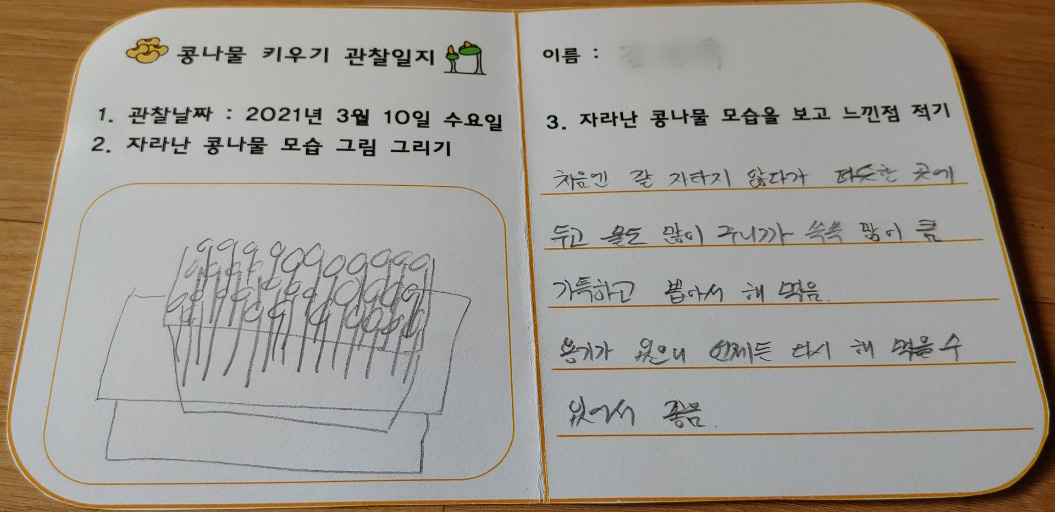 콩나물 키우기 관찰일지
1. 관찰날짜 : 2021년 3월 10일 수요일
2. 자라난 콩나물 모습 그림 그리기
이름 :
3. 자라난 콩나물 모습을 보고 느낀점 적기
처음엔 잘 자라지 않다가 따뜻한 곳에
두고 물도 많이 주니까 쑥쑥 많이 큼
가득하고 뽑아서 해 먹음.
용기가 있으니 언제든 다시 해 먹을 수
있어서 좋음.